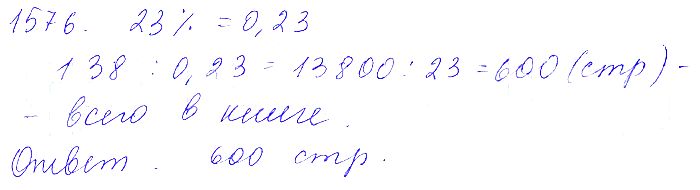 1576. 23% = 0,23
138 : 0,23 = 13800 : 23 = 600 (стр) -
- всего в книге.
Ответ. 600 стр.